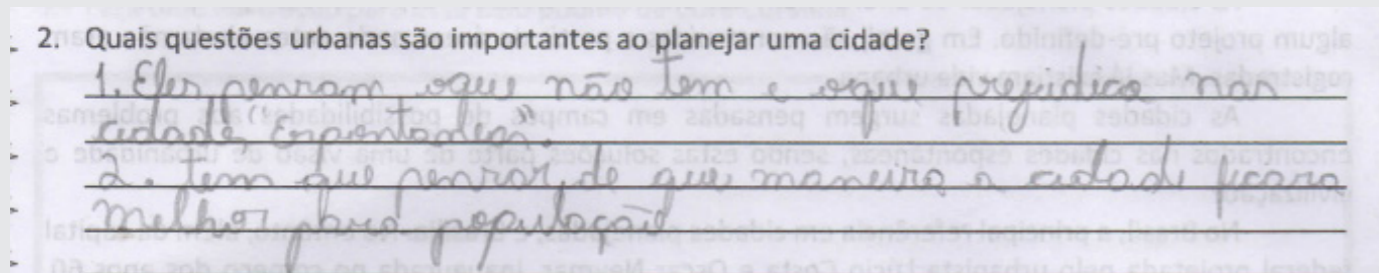 2. Quais questões urbanas são importantes ao planejar uma cidade?
1. Eles pensam oque não tem e oque prejudica nas
cidade "espontadeas".
2. tem que pensar de que maneira a cidade ficara
melhor pra população